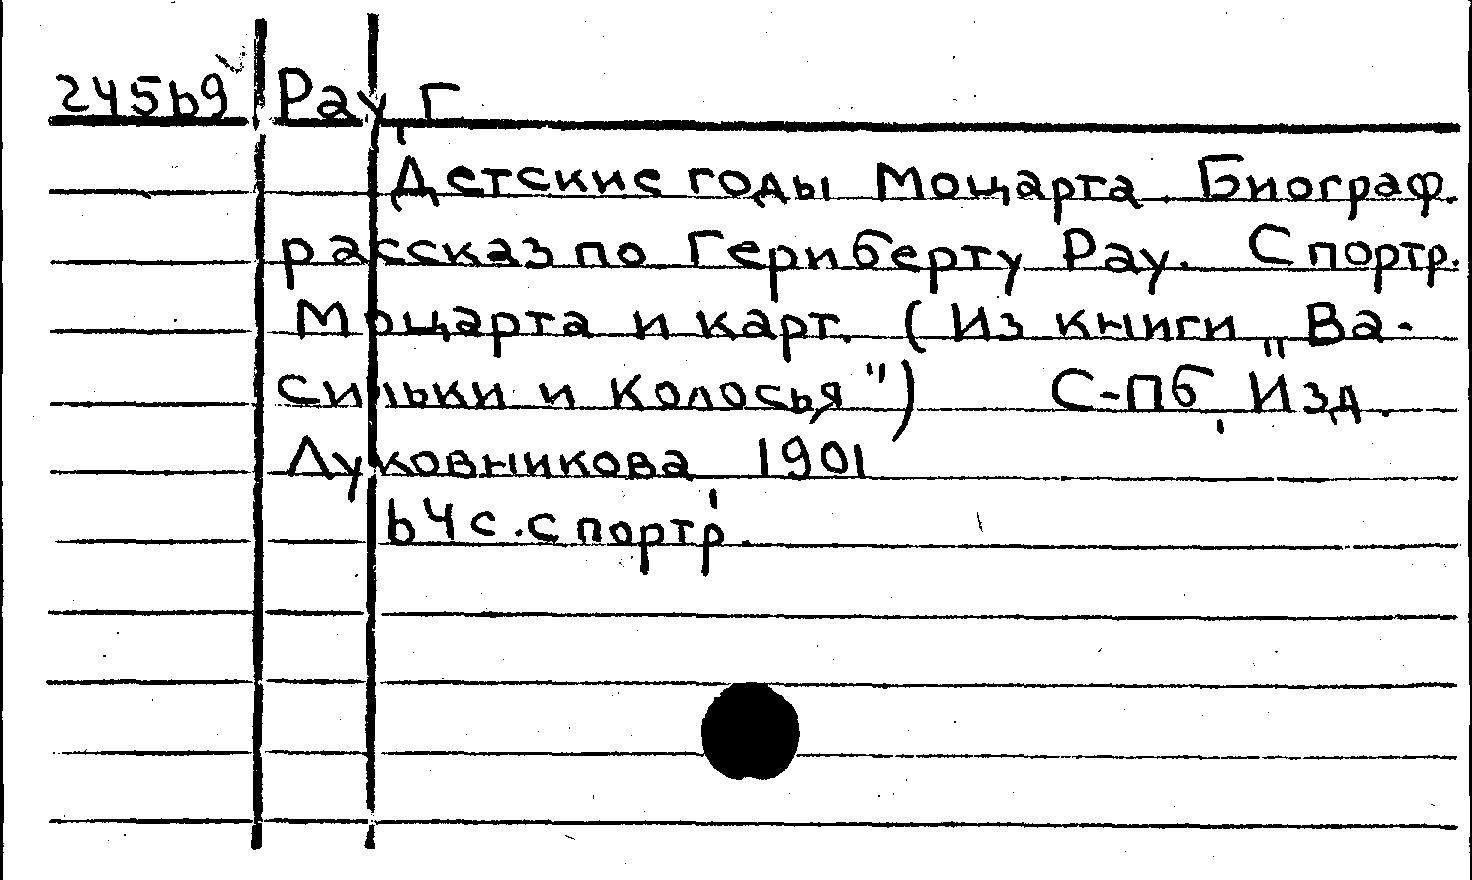 24569 Рау, Г
Детские годы Моцарта. Биограф.
рассказ по Гериберту Рау. С портр.
Моцарта и карт. (Из книги „Ва-
сильки и Колосья") С-Пб, Изд.
Луковникова, 1901
64 с. с портр.